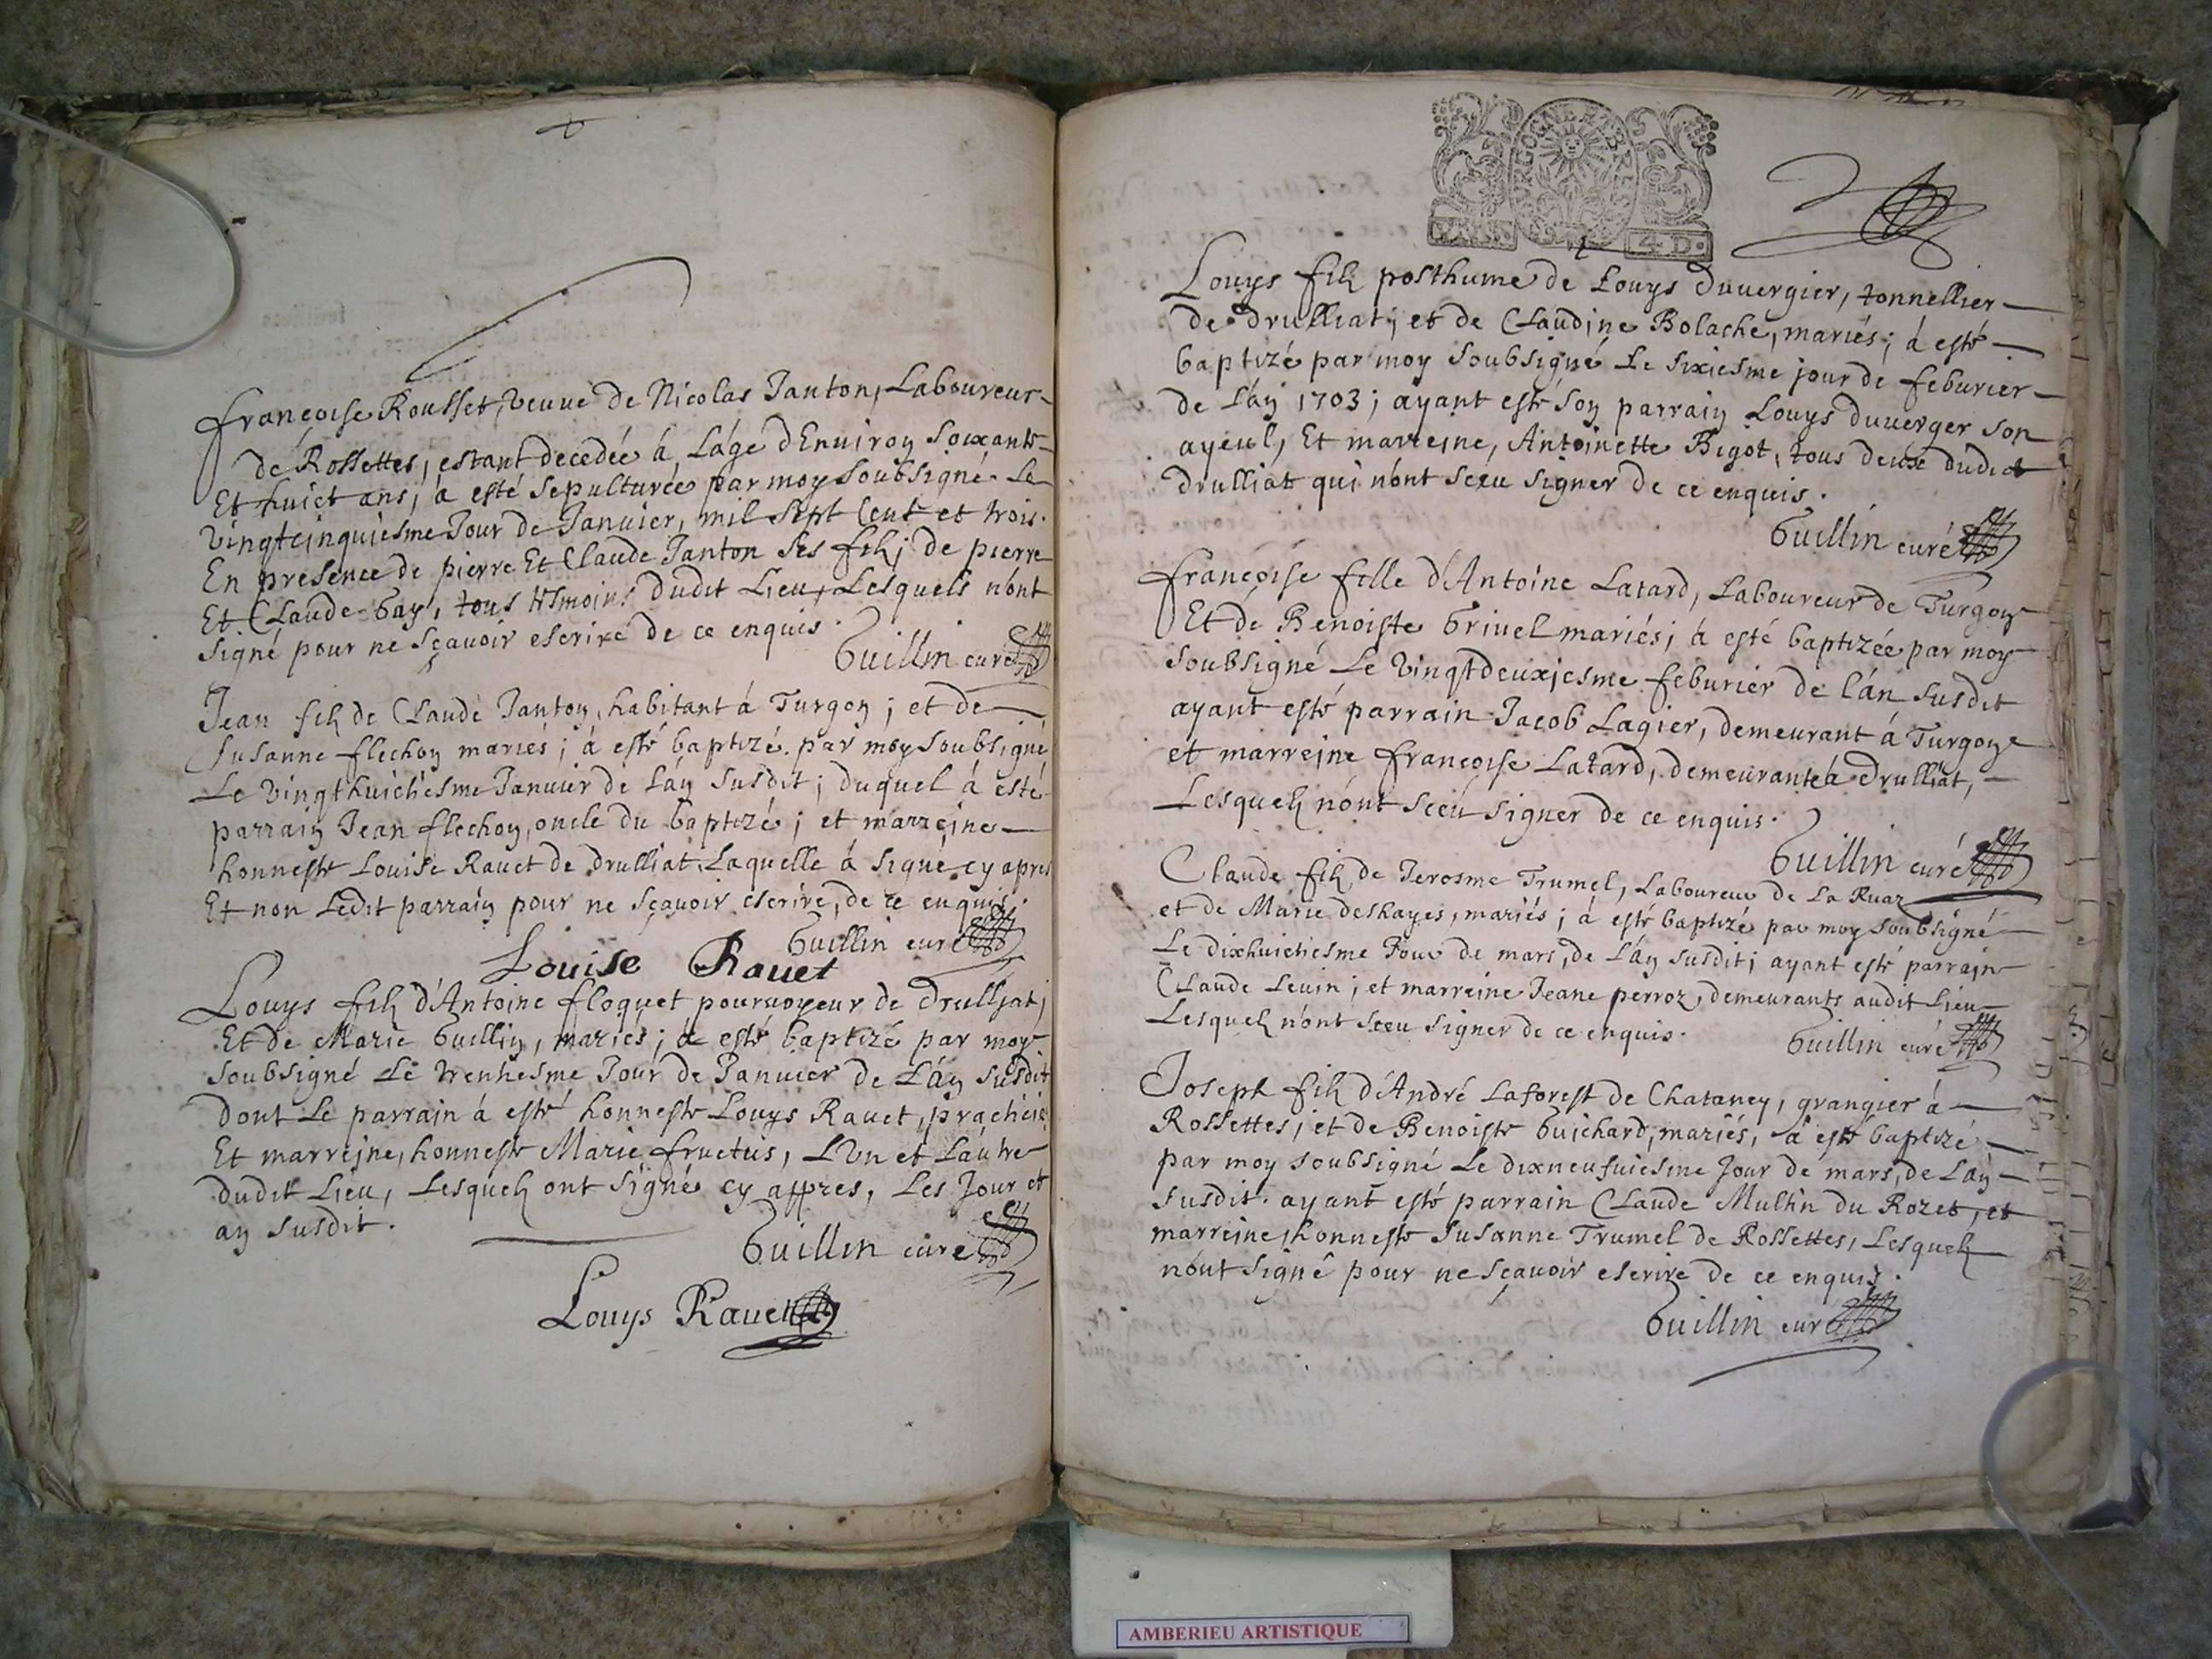 françoise Rousset, veuve de Nicolas Janton, Laboureur
de Rossettes, estant decedée á Láge dEnuiron soixante
Et huict ans, á esté sepulturée par moy soubsigné Le
vingtcinquiesme Jour de Januier, mil sept Cent et trois.
En presence de pierre Et Claude Janton ses filz; de pierre
Et Claude Gay, tous tesmoins dudit Lieu, Lesquels nónt
signé pour ne sçauoir escrire de ce enquis.
Guillin curé
Jean filz de Claude Janton, habitant á Turgon; et de
Susanne flechon mariés; á esté baptizé par moy soubsigné
Le vingthuictiesme Januier de Lán susdit; duquel á esté
parrain Jean flechon, oncle du baptizé; et marreine
honneste Louise Rauet de drulliat, Laquelle á signé cy apres
Et non Ledit parrain pour ne sçauoir escrire, de ce enquis.
Guillin curé
Louise Rauet
Louys filz d'Antoine floquet pouruoyeur de drulliat;
Et de Marie Guillin, mariés; á esté baptizé par moy
soubsigné Le trentiesme Jour de Januier de Lán susdit
dont Le parrain á esté honneste Louys Rauet, praticien
Et marreine, honneste Marie fructus, LVn et Láutre
dudit Lieu, Lesquelz ont signé cy apres, Les Jour et
an susdit.
Guillin curé
Louys Rauet
BOURGOGNE ET BRESSE
4. D.
Louys filz posthume de Louys duuergier, tonnellier
de drulliat; et de Claudine Bolache, mariés; á esté
baptizé par moy soubsigné Le sixiesme jour de feburier
de Lán 1703; ayant esté son parrain Louys duuerger son
ayeul, Et marreine, Antoinette Bigot, tous deux dudit
drulliat qui nónt sceu signer de ce enquis.
Guillin curé
françoise fille d'Antoine Latard, Laboureur de Turgon
Et de Benoiste Griuel mariés; á esté baptizée par moy
soubsigné Le vingtdeuxiesme feburier de lán susdit
ayant esté parrain Jacob Lagier, demeurant á Turgon
et marreine françoise Latard, demeurante á drulliat,
Lesquelz nónt sceu signer de ce enquis.
Guillin curé
Claude filz de Jerosme Trumel, Laboureur de La Ruaz
et de Marie deshayes, mariés; á esté baptizé par moy soubsigné
Le dixhuictiesme Jour de mars, de Lán susdit; ayant esté parrain
Claude Leuin; et marreine Jeane perroz, demeurants audit Lieu
Lesquelz nónt sceu signer de ce enquis.
Guillin curé
Joseph filz d'André Laforest de Chataney, grangier á
Rossettes; et de Benoiste Guichard, mariés, á esté baptizé
par moy soubsigné Le dixneufuiesme Jour de mars, de Lán
susdit. ayant esté parrain Claude Multin du Rozet, et
marreine, honneste Susanne Trumel de Rossettes, Lesquelz
nónt signé pour ne sçauoir escrire de ce enquis.
Guillin curé
AMBERIEU ARTISTIQUE